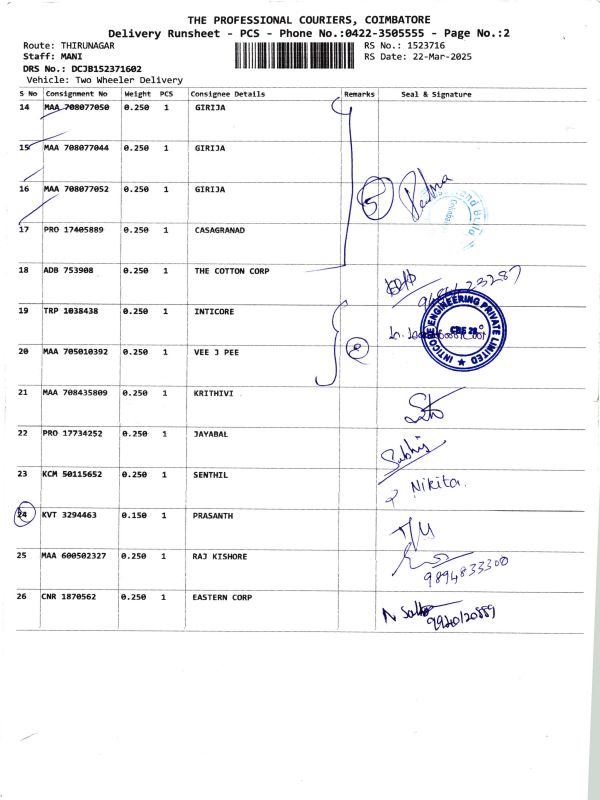 THE PROFESSIONAL COURIERS, COIMBATORE
Delivery Runsheet - PCS - Phone No.:0422-3505555 - Page No.:2
Route: THIRUNAGAR RS No.: 1523716
Staff: MANI RS Date: 22-Mar-2025
DRS No.: DCJB152371602
Vehicle: Two Wheeler Delivery
S No Consignment No Weight PCS Consignee Details Remarks Seal & Signature
14 MAA 708077050 0.250 1 GIRIJA
15 MAA 708077044 0.250 1 GIRIJA
16 MAA 708077052 0.250 1 GIRIJA
5
17 PRO 17405889 0.250 1 CASAGRANAD
18 ADB 753908 0.250 1 THE COTTON CORP
19 TRP 1038438 0.250 1 INTICORE
INTICORE ENGINEERING PRIVATE LIMITED
CBE 28
20 MAA 705010392 0.250 1 VEE J PEE
2
21 MAA 708435809 0.250 1 KRITHIVI
22 PRO 17734252 0.250 1 JAYABAL
23 KCM 50115652 0.250 1 SENTHIL
Nikita.
24 KVT 3294463 0.150 1 PRASANTH
25 MAA 600502327 0.250 1 RAJ KISHORE
9894833300
26 CNR 1870562 0.250 1 EASTERN CORP
9940120889